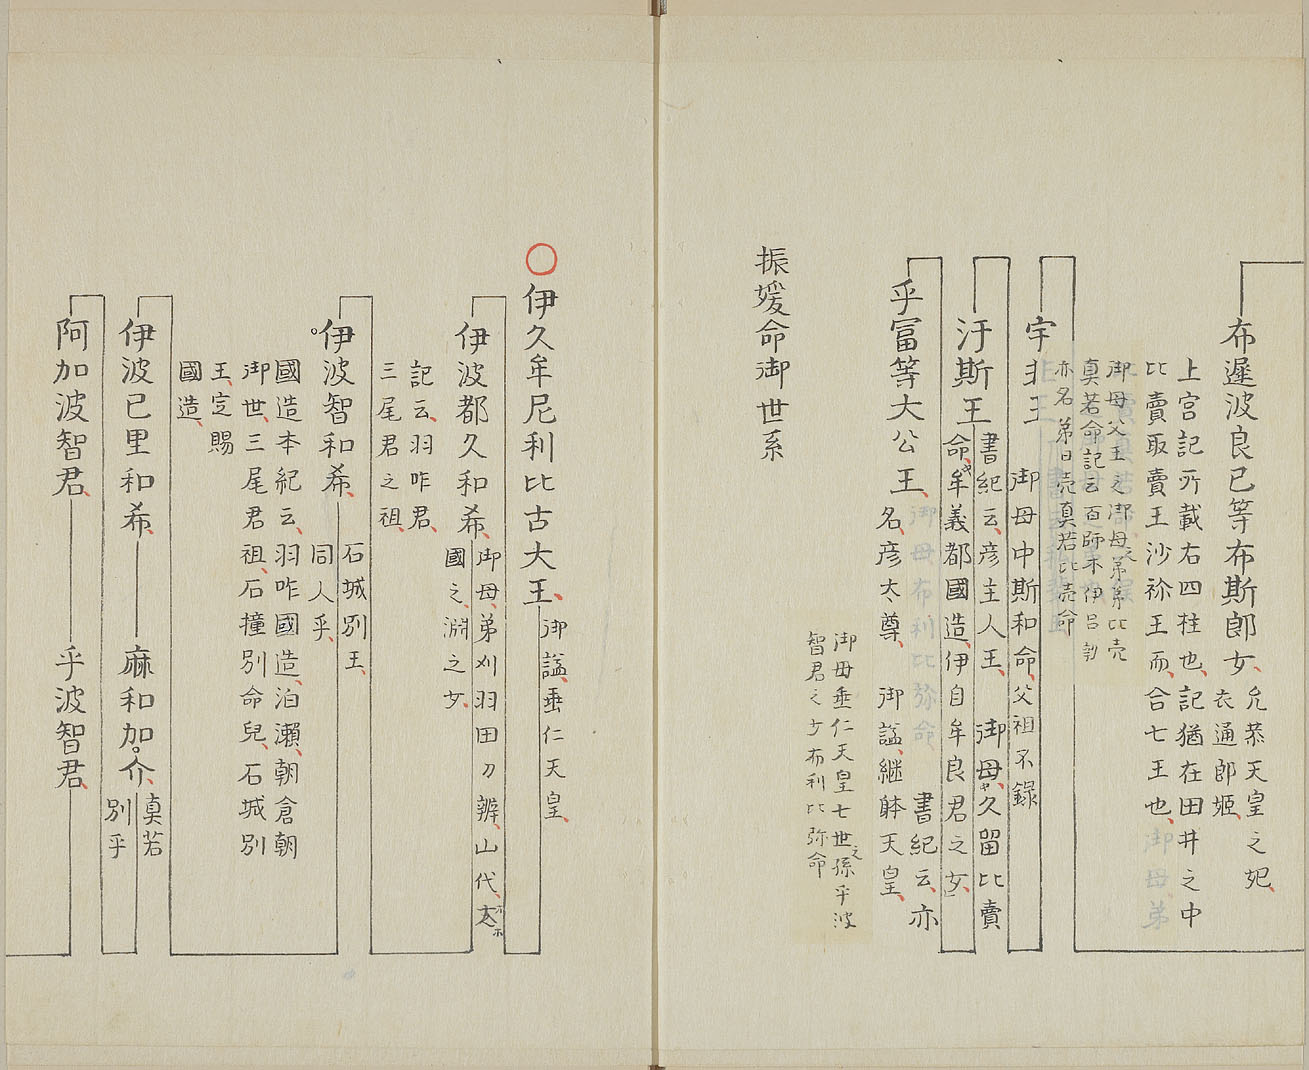 布遲波良已等布斯郎女、
允恭天皇之妃、
衣通郎姬、
上宮記所載右四柱也、記猶在田井之中
比賣取賣王沙祢王而、合七王也、
御母父王之御母之弟弟比売
真若命記云百師木伊呂
亦名弟日売真若比売命
宇非王
御母中斯和命、父祖不錄
汙斯王
書紀云、彦主人王、　御母、久留比賣
命、牟義都國造、伊自牟良君之女、
乎冨等大公王、
書紀云、亦
名、彦太尊、　御諡、継躰天皇、
御母垂仁天皇七世之孫乎波
智君之女布利比弥命
振媛命御世系
〇伊久牟尼利比古大王、
御諡、垂仁天皇、
伊波都久和希、
御母、弟刈羽田刀辨、山代、大
國之、淵之女、
記云、羽咋君、
三尾君之祖、
伊波智和希、
石城別王、
同人乎、
國造本紀云、羽咋國造、泊瀬、朝倉朝
御世、三尾君祖、石撞別命兒、石城別
王、定賜
國造、
伊波已里和希、
麻和加介、
真若
別乎
阿加波智君、
乎波智君、